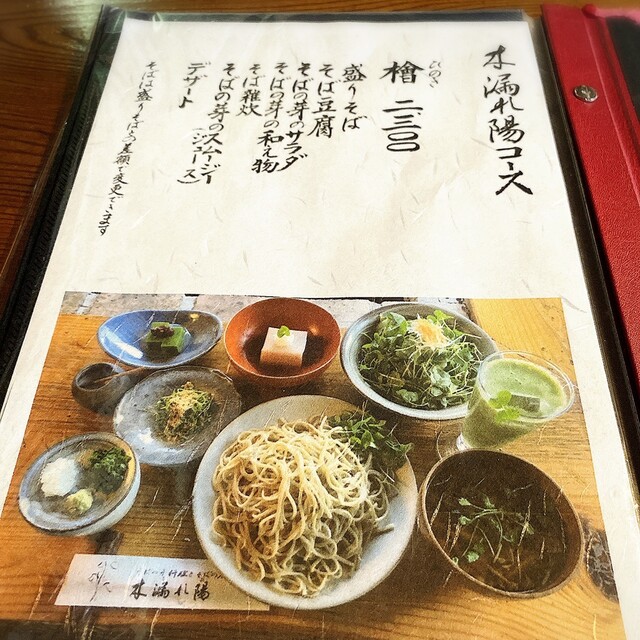 木漏れ陽コース
ひのき
檜 二三〇〇
盛りそば
そば豆腐
そばの芽のサラダ
そばの芽の和え物
そば雑炊
そばの芽のスムージー
（ジュース）
デザート
そばは盛りそばとの差額で変更できます
木漏れ陽